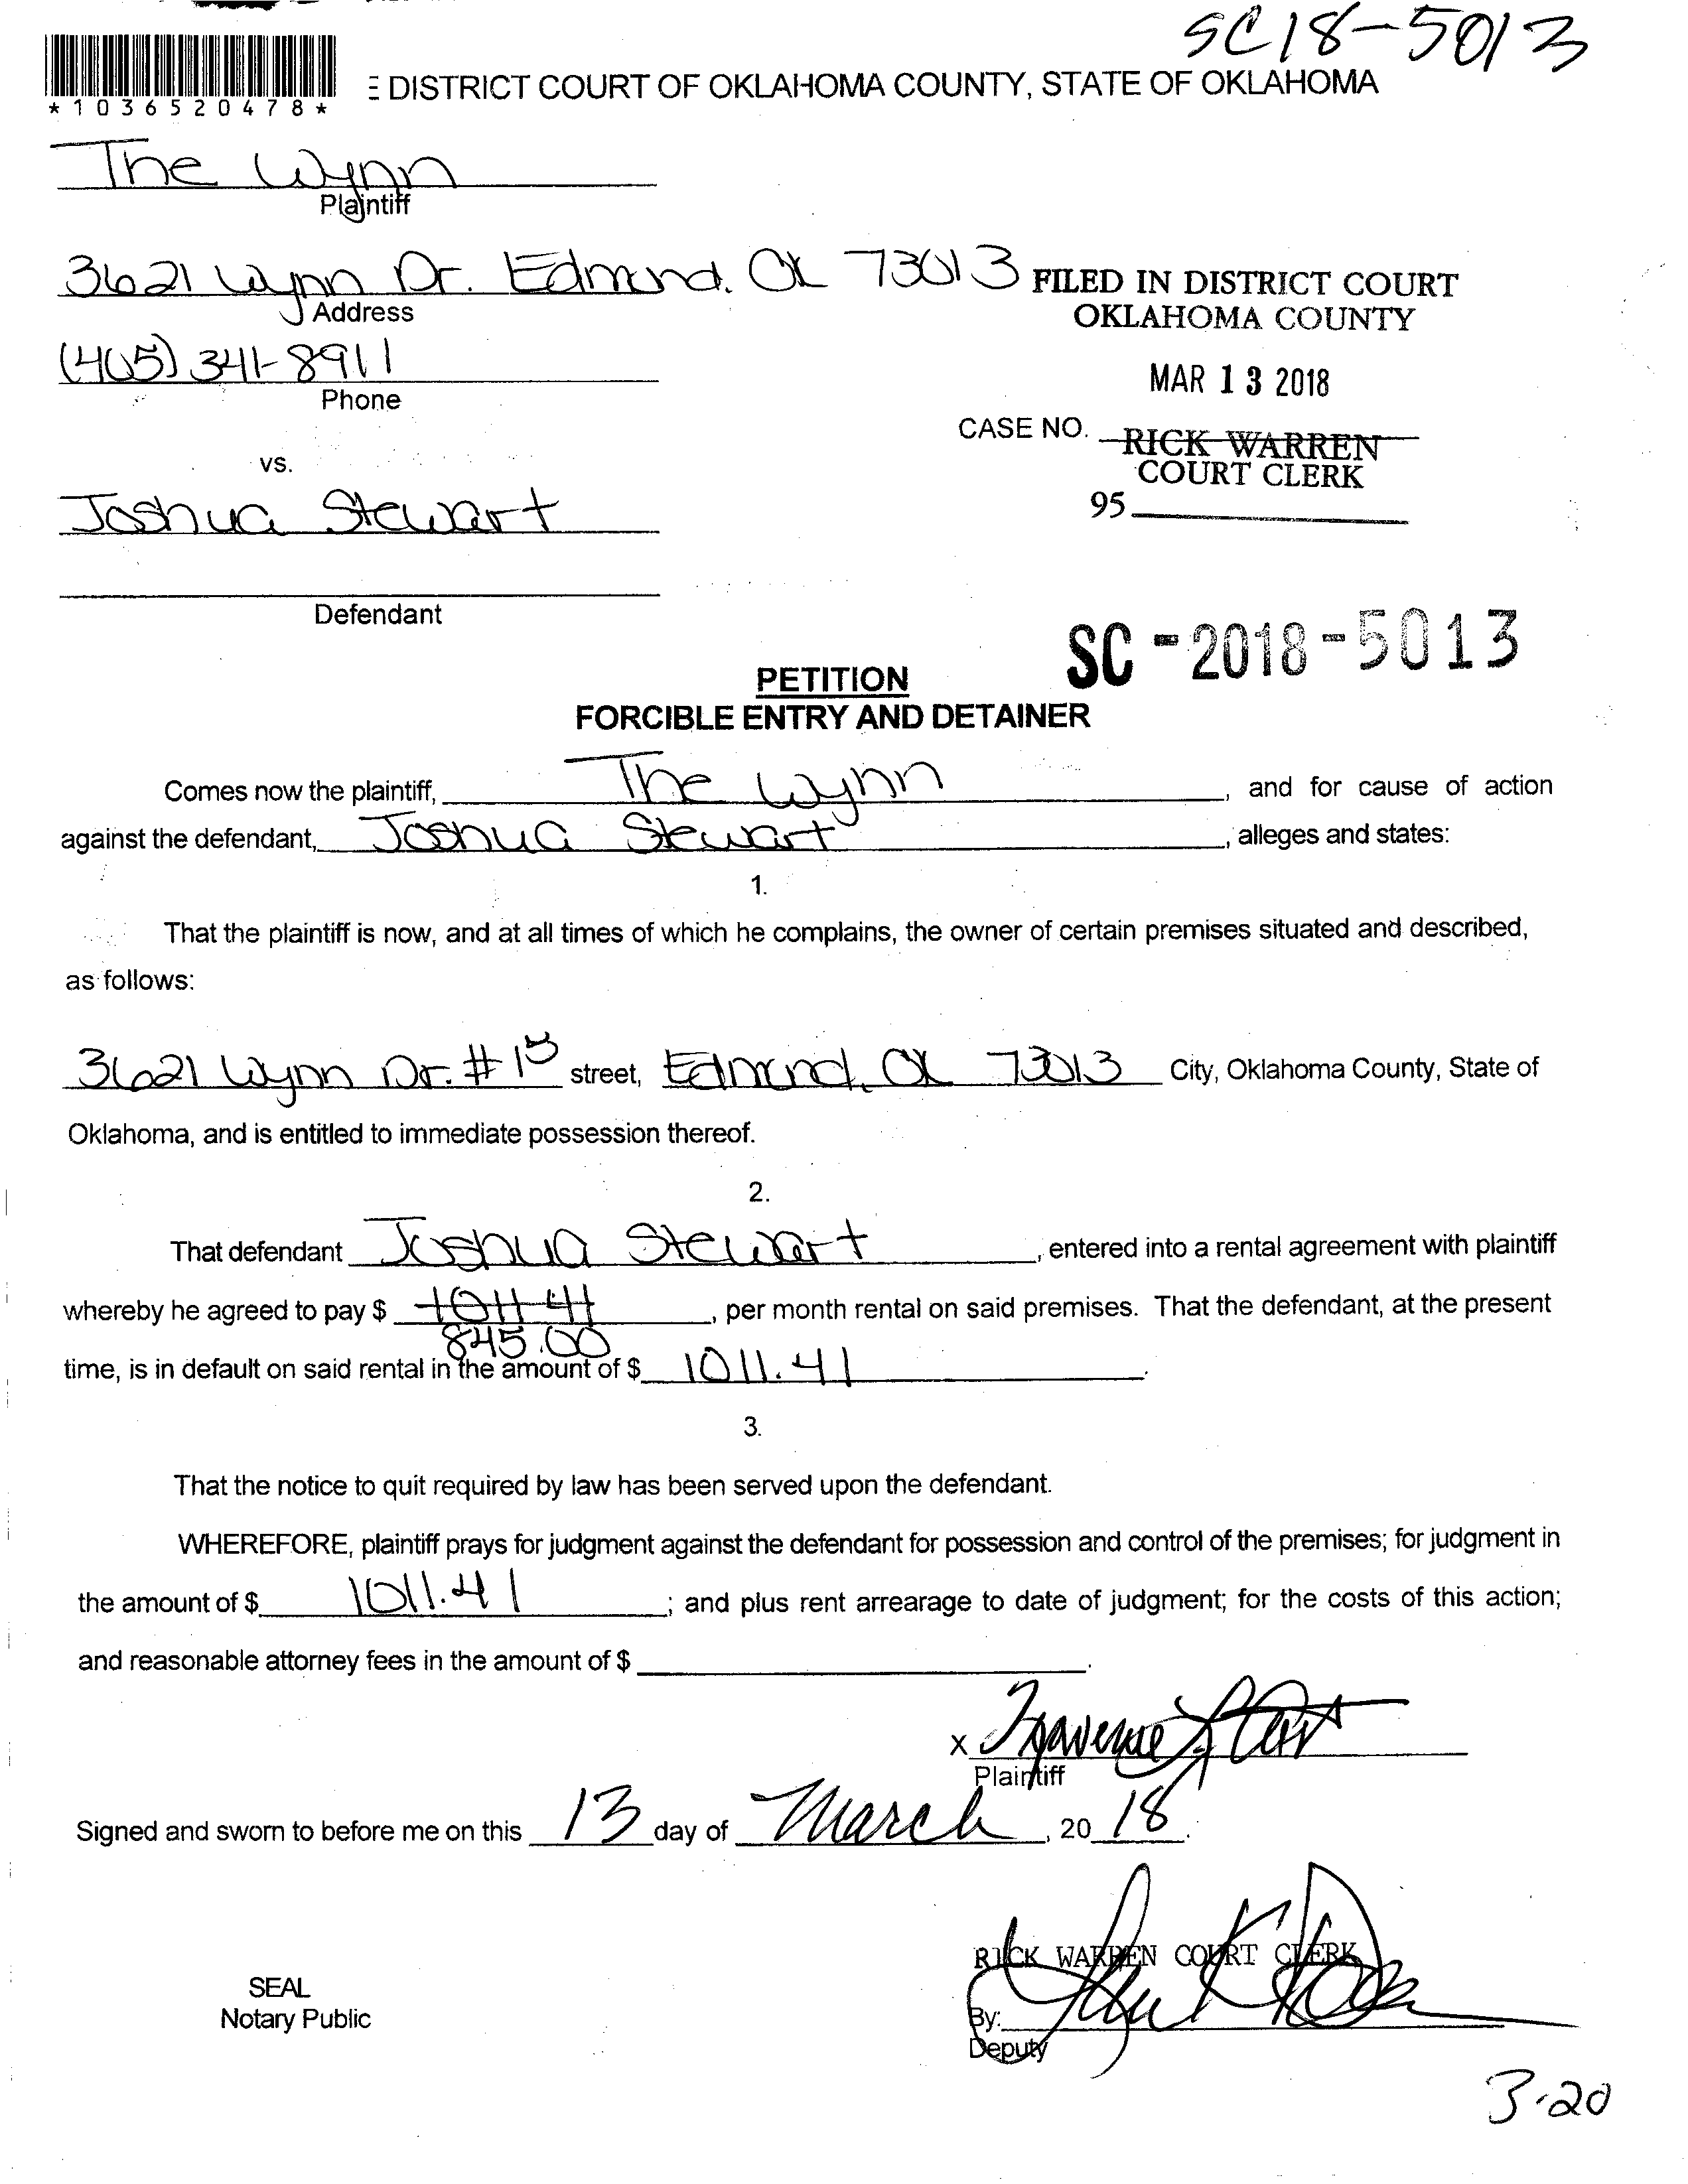 SC18-5013
*1036520478*
E DISTRICT COURT OF OKLAHOMA COUNTY, STATE OF OKLAHOMA
The Wynn
Plaintiff
3621 Wynn Dr. Edmond, OK 73013
Address
FILED IN DISTRICT COURT
OKLAHOMA COUNTY
(405) 341-8911
Phone
MAR 13 2018
CASE NO. RICK WARREN
COURT CLERK
vs.
95
Joshua Stewart
Defendant
SC-2018-5013
PETITION
FORCIBLE ENTRY AND DETAINER
Comes now the plaintiff, The Wynn, and for cause of action
against the defendant, Joshua Stewart, alleges and states:
1.
That the plaintiff is now, and at all times of which he complains, the owner of certain premises situated and described,
as follows:
3621 Wynn Dr. # street, Edmond, OK 73013 City, Oklahoma County, State of
Oklahoma, and is entitled to immediate possession thereof.
2.
That defendant Joshua Stewart, entered into a rental agreement with plaintiff
whereby he agreed to pay $ 1011.41, per month rental on said premises. That the defendant, at the present
845.00
time, is in default on said rental in the amount of $ 1011.41.
3.
That the notice to quit required by law has been served upon the defendant.
WHEREFORE, plaintiff prays for judgment against the defendant for possession and control of the premises; for judgment in
the amount of $ 1011.41; and plus rent arrearage to date of judgment; for the costs of this action;
and reasonable attorney fees in the amount of $ .
X
Plaintiff
Signed and sworn to before me on this 13 day of March, 20 18.
RICK WARREN COURT CLERK
SEAL
Notary Public
By:
Deputy
3-20